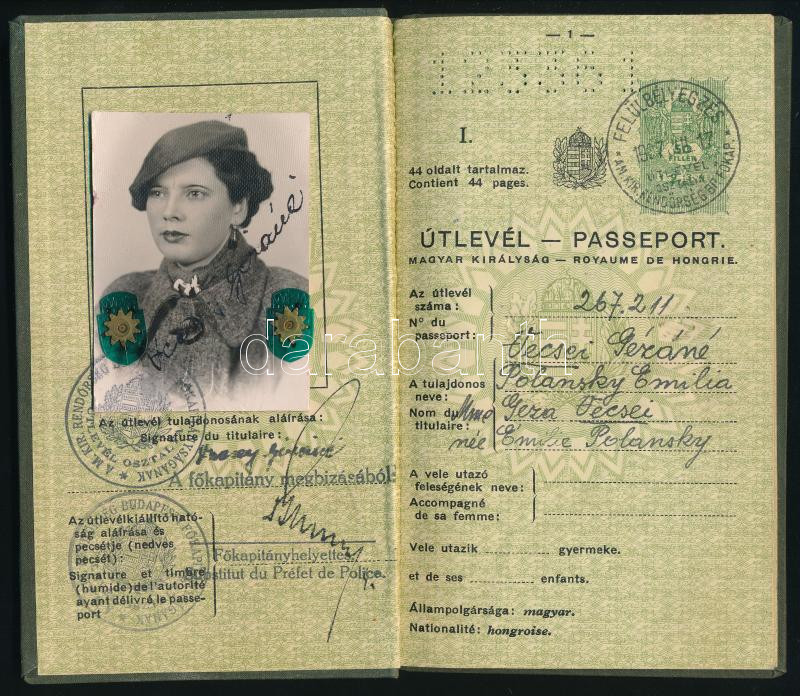 Géráné
Az útlevél tulajdonosának aláírása:
Signature du titulaire:
A főkapitány megbizásából:
Az útlevélkiállitó ható-
ság aláírása és
pecsétje (nedves
pecsét):
Signature et timbre
(humide) de l'autorité
ayant délivré le passe-
port
Főkapitányhelyettes
Substitut du Préfet de Police.
A M. KIR. RENDŐRSÉG
ÚTLEVÉL OSZTÁLY
— 1 —
I.
44 oldalt tartalmaz.
Contient 44 pages.
FELÜLBÉLYEGZÉS
FILLÉR
ÚTLEVÉL — PASSEPORT.
MAGYAR KIRÁLYSÁG — ROYAUME DE HONGRIE.
Az útlevél
száma: 267.211
N° du
passeport:
Vécsei Gézáné
A tulajdonos
neve: Polánsky Emilia
Nom du
titulaire: Mme Géza Vécsei
née Emilie Polánsky
A vele utazó
feleségének neve:
Accompagné
de sa femme:
Vele utazik gyermeke.
et de ses enfants.
Állampolgársága: magyar.
Nationalité: hongroise.
darabanth